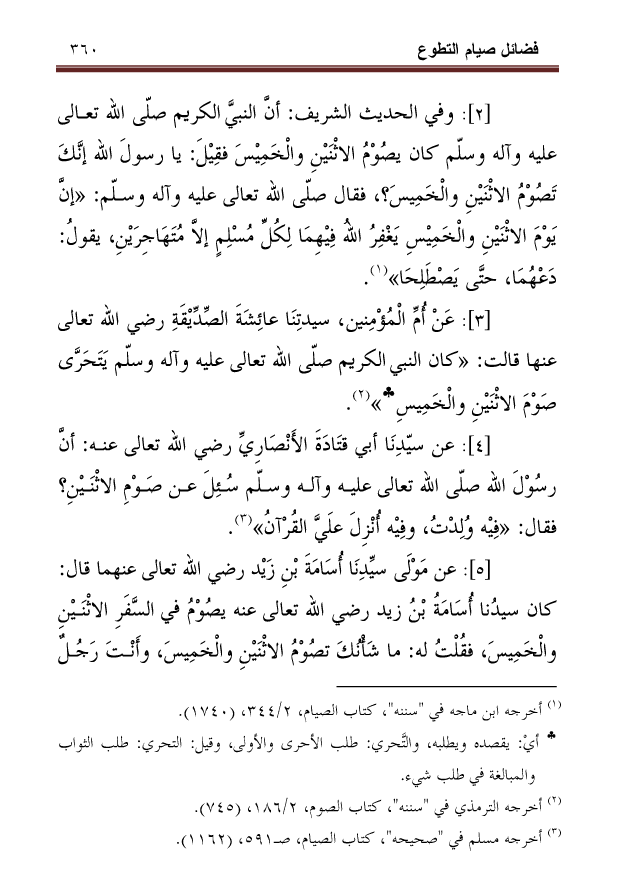 فضائل صيام التطوع ٣٦٠
[٢]: وفي الحديث الشريف: أنَّ النبيَّ الكريم صلّى الله تعـالى
عليه وآله وسلّم كان يصُوْمُ الاثْنَيْنِ والْخَمِيْسَ فقِيْلَ: يا رسولَ الله إنَّكَ
تَصُوْمُ الاثْنَيْنِ والْخَمِيسَ؟، فقال صلّى الله تعالى عليه وآله وسـلّم: «إنَّ
يَوْمَ الاثْنَيْنِ والْخَمِيْسِ يَغْفِرُ اللهُ فِيْهِمَا لِكُلِّ مُسْلِمٍ إلاَّ مُتَهَاجِرَيْنِ، يقولُ:
دَعْهُمَا، حتَّى يَصْطَلِحَا»(١).
[٣]: عَنْ أُمِّ الْمُؤْمِنين، سيدتِنَا عائِشَةَ الصِّدِّيْقَةِ رضي الله تعالى
عنها قالت: «كان النبي الكريم صلّى الله تعالى عليه وآله وسلّم يَتَحَرَّى
صَوْمَ الاثْنَيْنِ والْخَمِيسِ♣»(٢).
[٤]: عن سيّدِنَا أبي قتَادَةَ الأَنْصَارِيِّ رضي الله تعالى عنـه: أنَّ
رسُوْلَ الله صلّى الله تعالى عليـه وآلـه وسـلّم سُـئِلَ عـن صَـوْمِ الاثْنَـيْنِ؟
فقال: «فِيْه وُلِدْتُ، وفِيْه أُنْزِلَ علَيَّ القُرْآنُ»(٣).
[٥]: عن مَوْلَى سيِّدِنَا أُسَامَةَ بْنِ زَيْد رضي الله تعالى عنهما قال:
كان سيدُنا أُسَامَةُ بْنُ زيد رضي الله تعالى عنه يصُوْمُ في السَّفَرِ الاثْنَـيْنِ
والْخَمِيسَ، فقُلْتُ له: ما شَأْنُكَ تصُوْمُ الاثْنَيْنِ والْخَمِيسَ، وأَنْـتَ رَجُـلٌ
(١) أخرجه ابن ماجه في "سننه"، كتاب الصيام، ٣٤٤/٢، (١٧٤٠).
♣ أيْ: يقصده ويطلبه، والتَّحري: طلب الأحرى والأولى، وقيل: التحري: طلب الثواب
والمبالغة في طلب شيء.
(٢) أخرجه الترمذي في "سننه"، كتاب الصوم، ١٨٦/٢، (٧٤٥).
(٣) أخرجه مسلم في "صحيحه"، كتاب الصيام، صـ٥٩١، (١١٦٢).